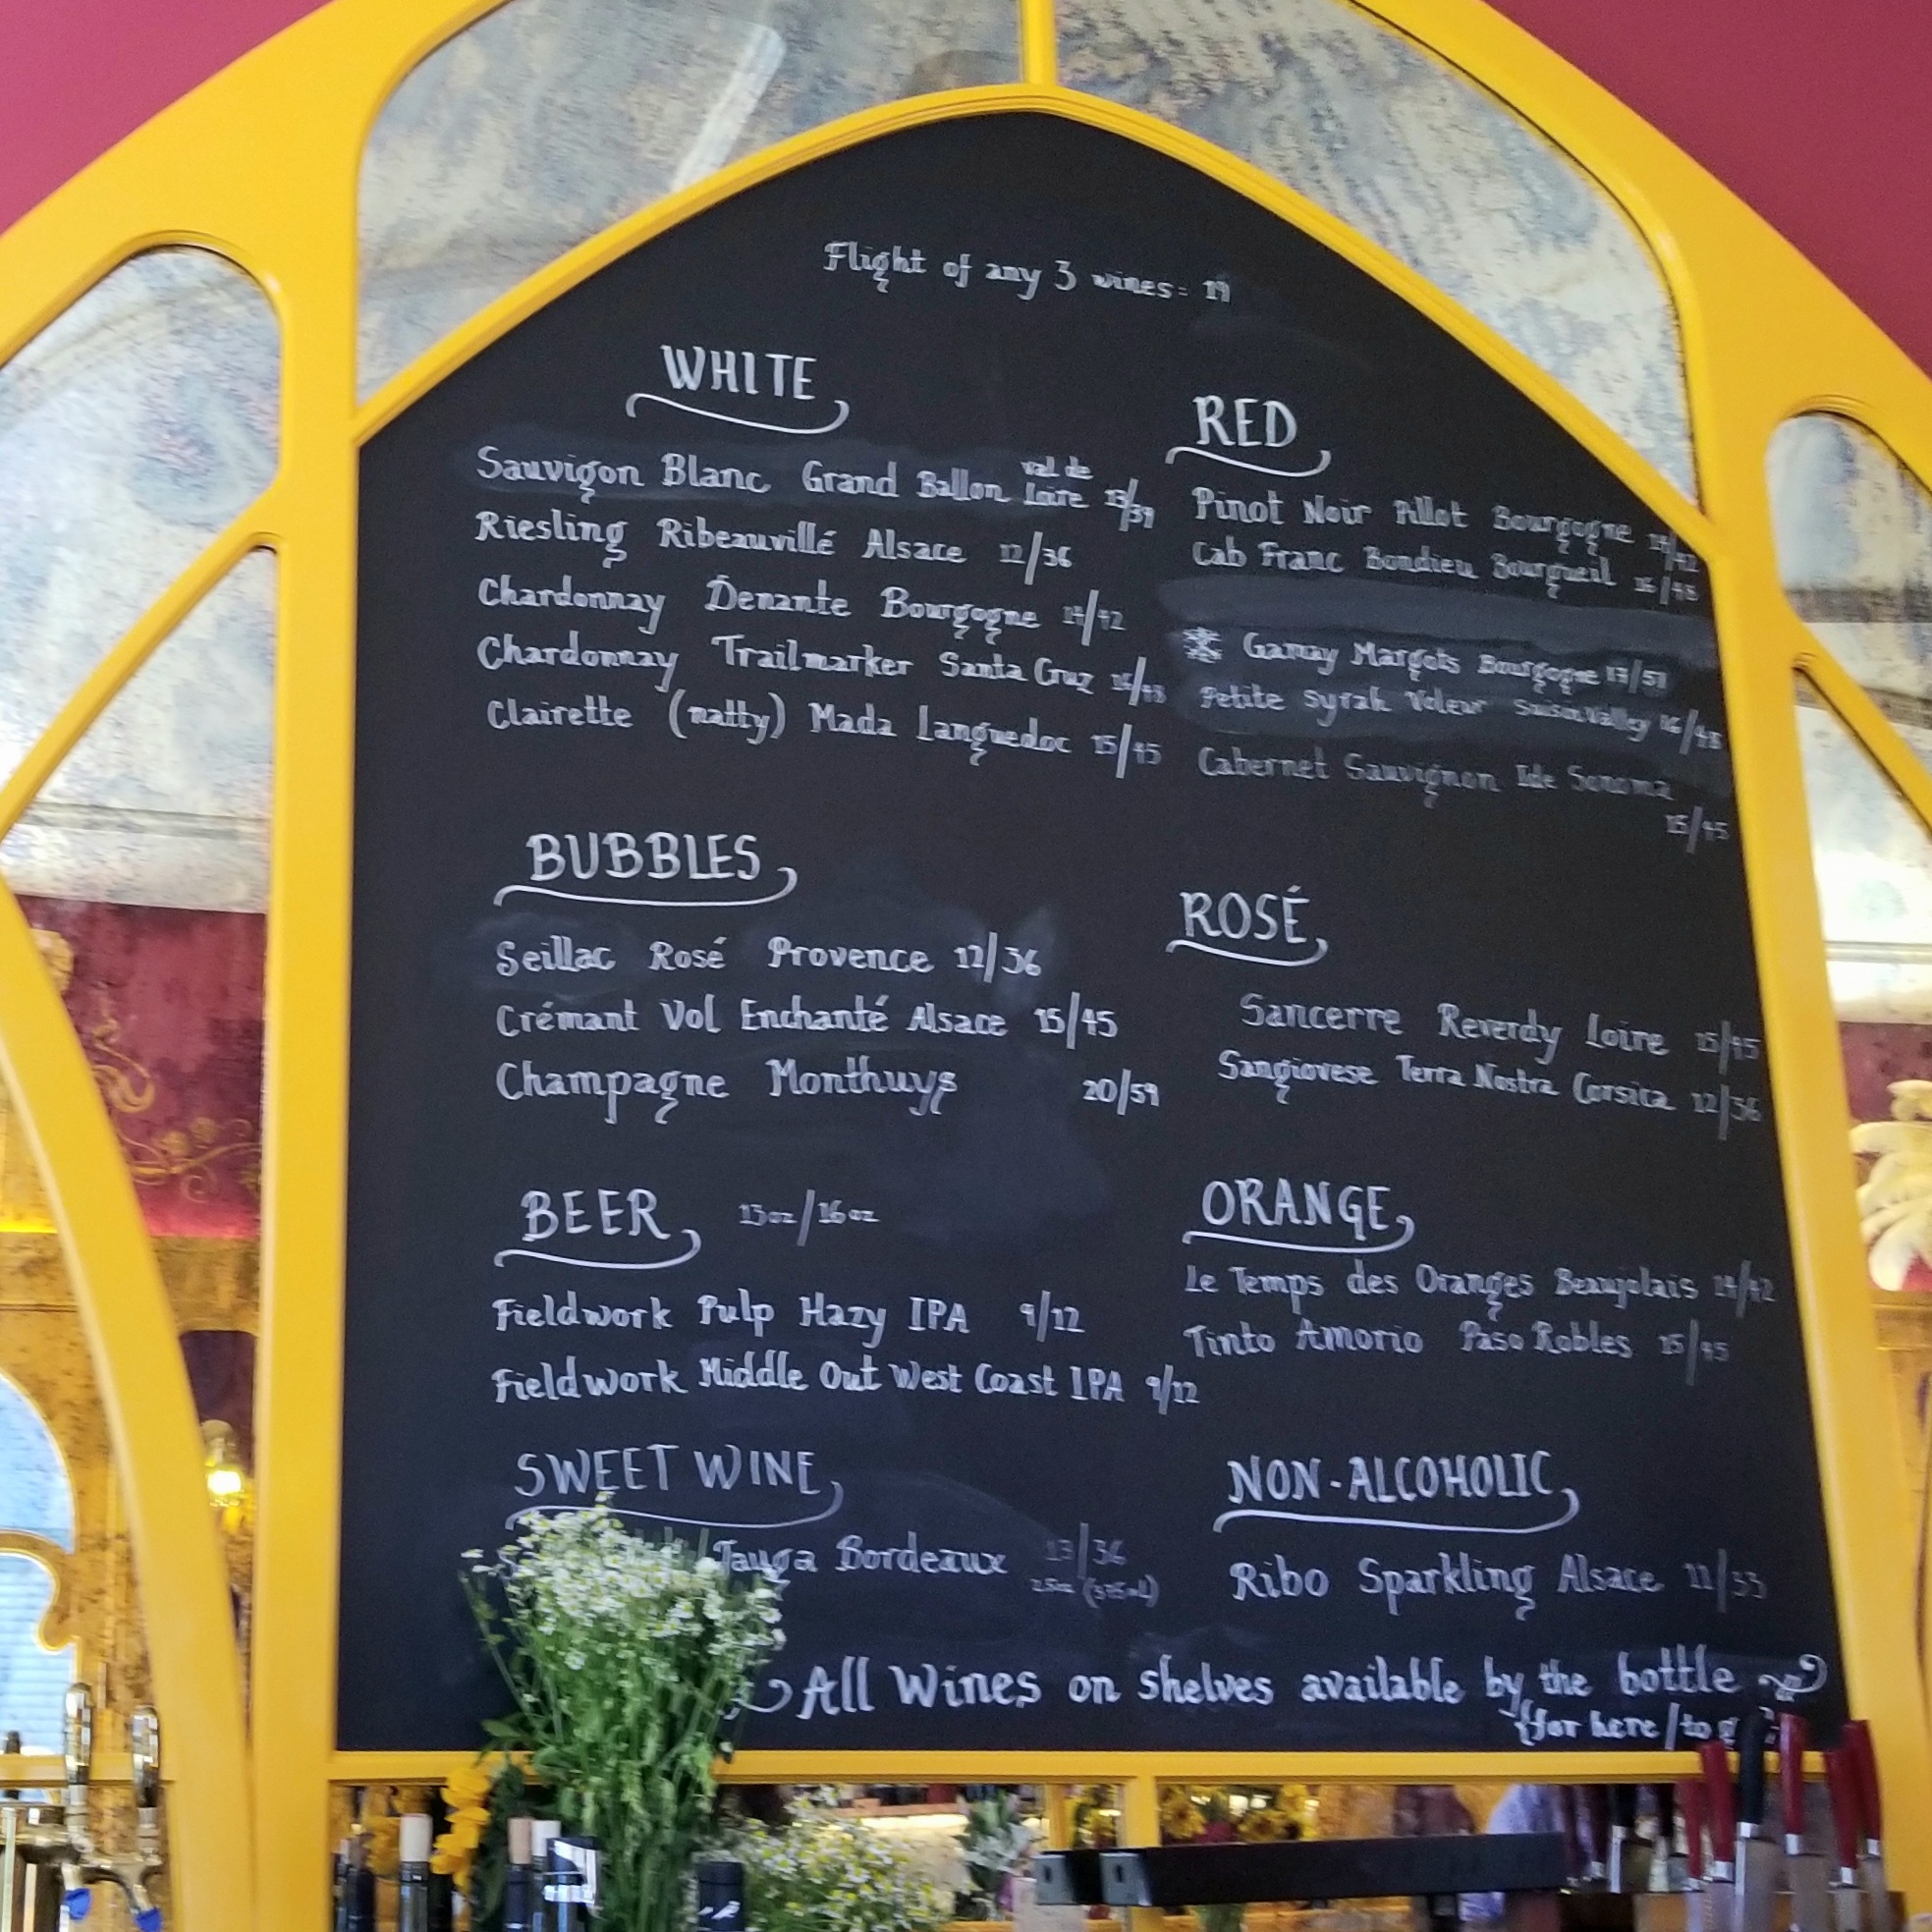 Flight of any 3 wines = 19
WHITE
Sauvigon Blanc Grand Ballon val de Loire 13/39
Riesling Ribeauvillé Alsace 12/36
Chardonnay Denante Bourgogne 14/42
Chardonnay Trailmarker Santa Cruz 16/48
Clairette (natty) Mada Languedoc 15/45
RED
Pinot Noir Pillot Bourgogne 14/42
Cab Franc Bondieu Bourgueil 16/48
Gamay Margots Bourgogne 17/51
Petite Syrah Voleur Suisun Valley 16/48
Cabernet Sauvignon Ide Sonoma
15/45
BUBBLES
Seillac Rosé Provence 12/36
Crémant Vol Enchanté Alsace 15/45
Champagne Monthuys 20/59
ROSÉ
Sancerre Reverdy Loire 15/45
Sangiovese Terra Nostra Corsica 12/36
BEER 13oz/16oz
Fieldwork Pulp Hazy IPA 9/12
Fieldwork Middle Out West Coast IPA 9/12
ORANGE
Le Temps des Oranges Beaujolais 14/42
Tinto Amorio Paso Robles 15/45
SWEET WINE
Tauga Bordeaux 13/36
2.5oz (375mL)
NON-ALCOHOLIC
Ribo Sparkling Alsace 11/33
All Wines on shelves available by the bottle
(for here/to